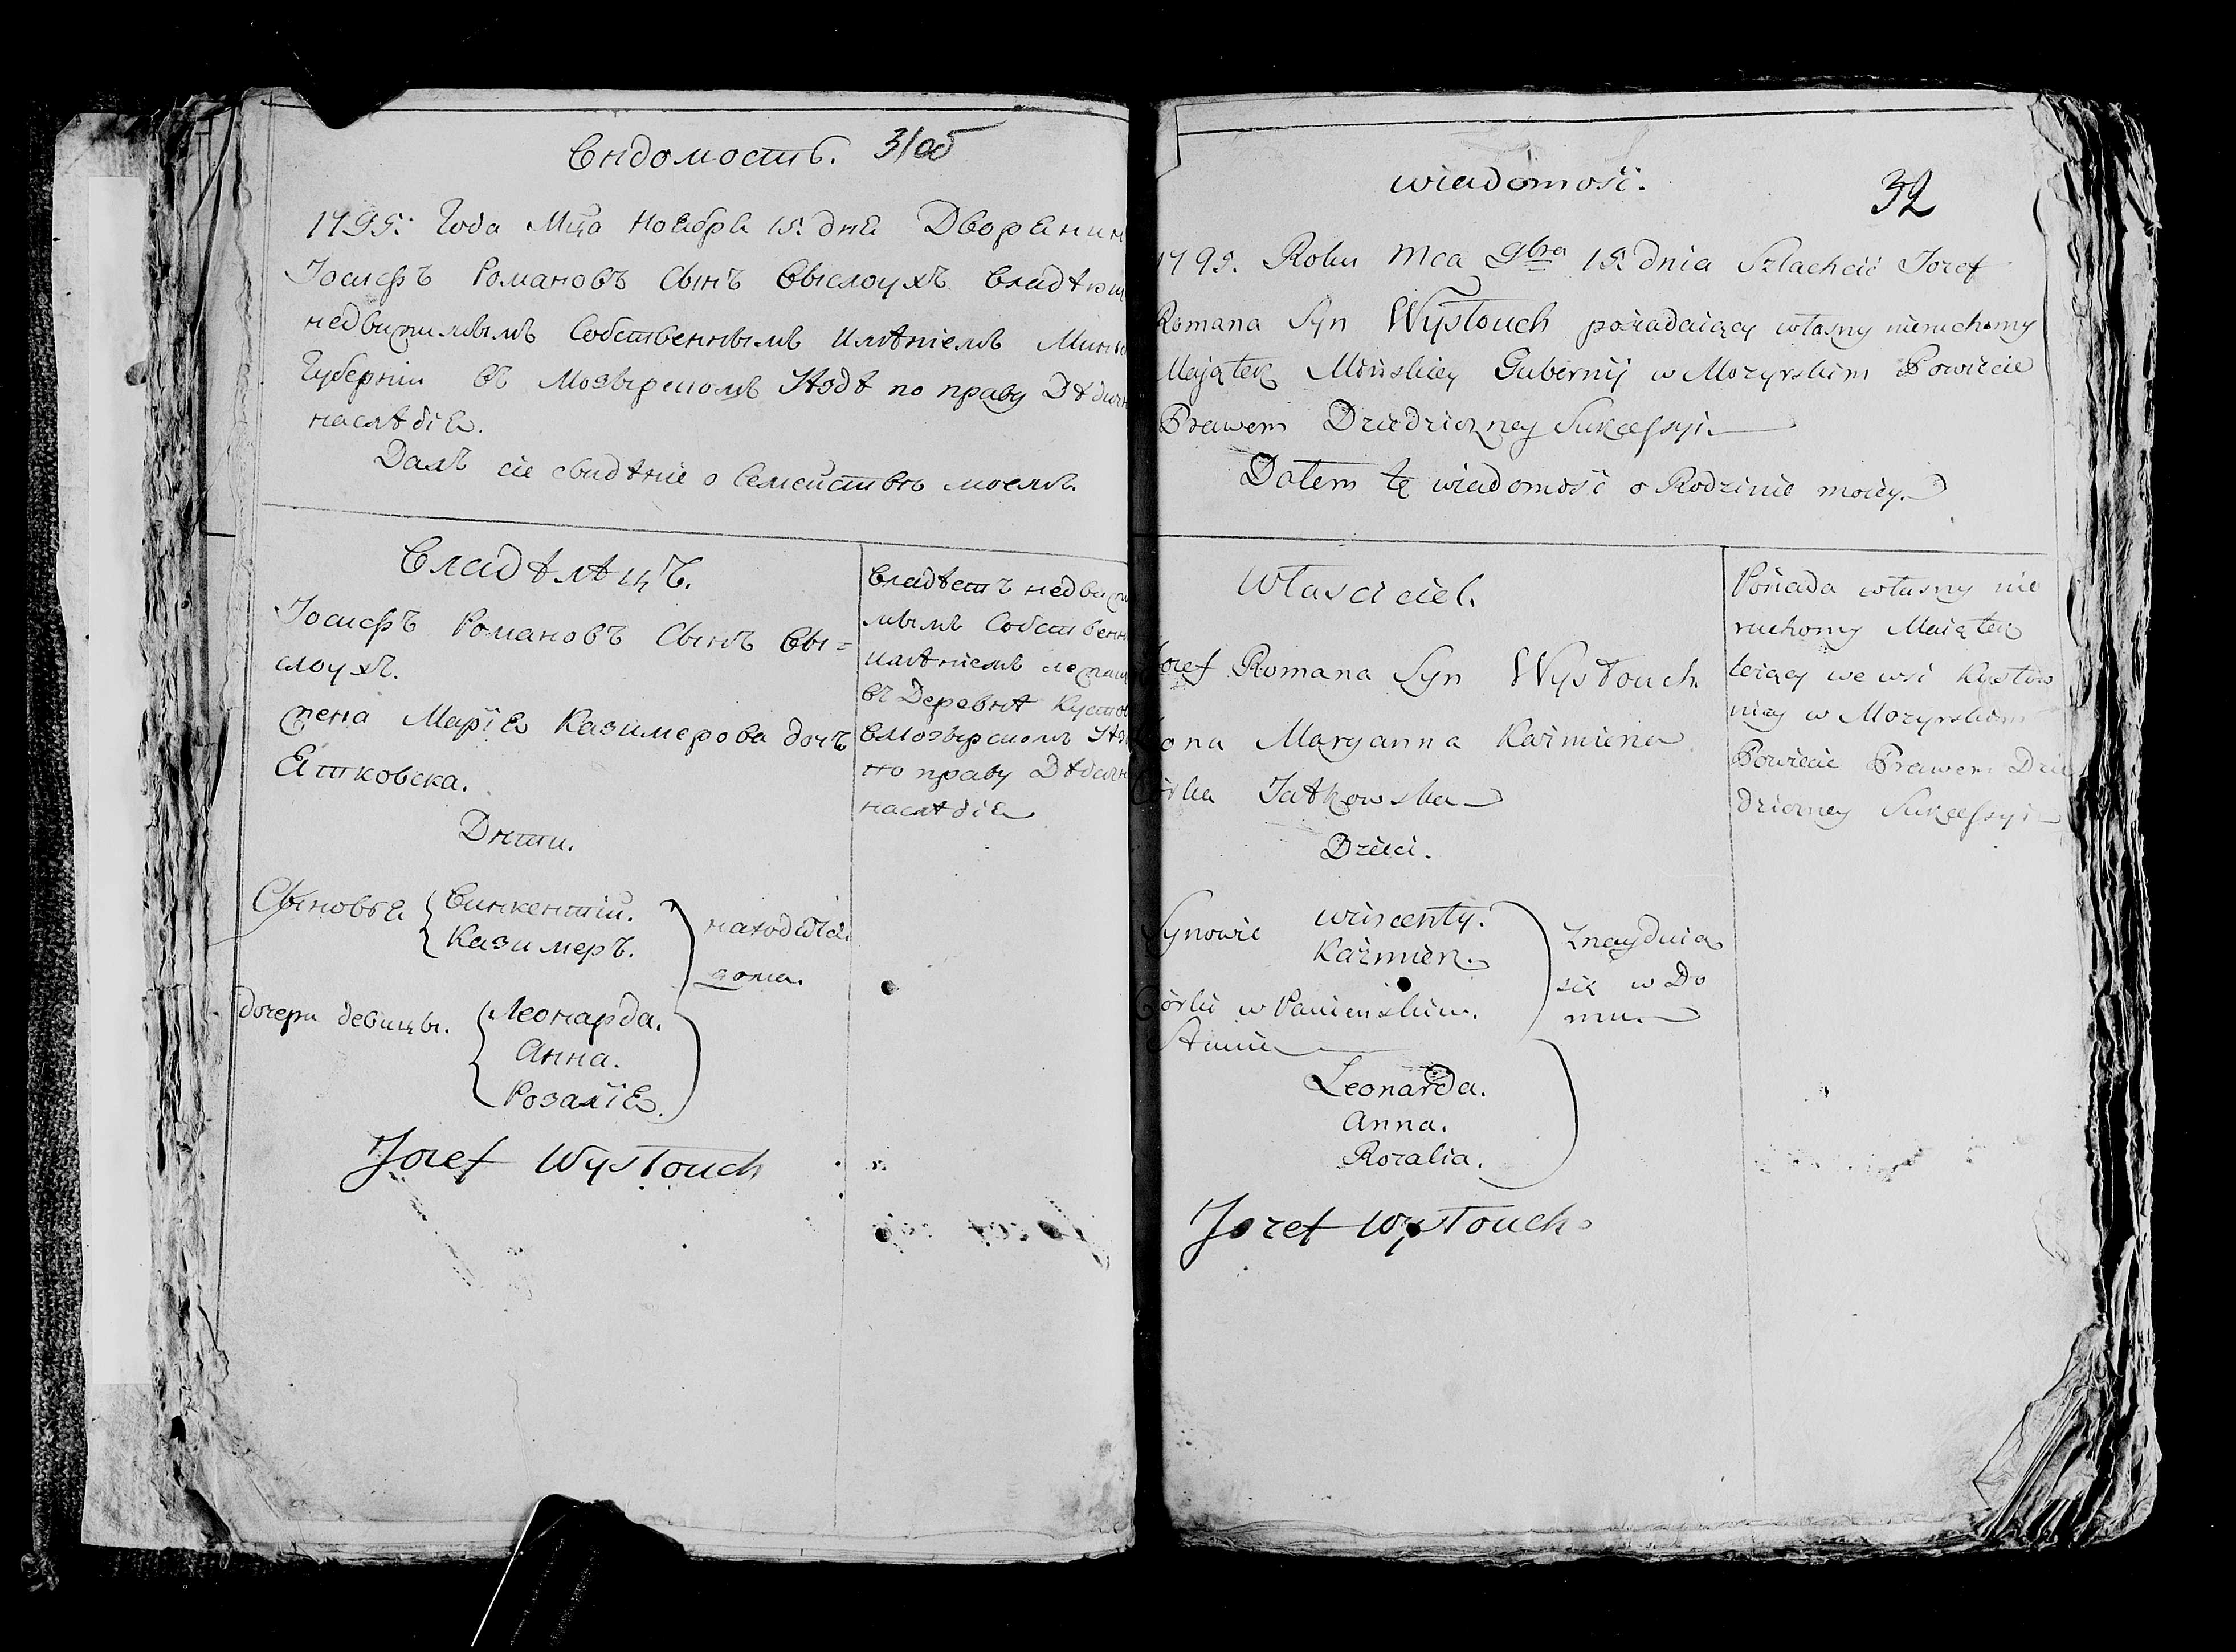 Вѣдомость. 31об
1795: Года Мца Ноября 15: дня Дворянин
Іосифъ Романовъ Сынъ Выслоухъ владѣющ
недвижимымъ Собственнымъ имѣніемъ Минск
Губерніи въ Мозырскомъ Уѣздѣ по праву Дѣдичн
наслѣдія.
Далъ сіе свидѣніе о Семействѣ моемъ.
Владѣлѣцъ.
Іосифъ Романовъ Сынъ Вы=
слоухъ.
жена Марія Казимерова дочъ
Ятковска.
Дѣти.
Сыновья Винкентій.
Казимеръ.
находятся
дома.
дочери девицы. Леонарда.
Анна.
Розалія.
владѣетъ недвижи
мымъ Собственн
имѣніемъ лежащ
въ Деревнѣ Кустов
вМозырскомъ Уѣз
по праву Дѣдичн
наслѣдія
Jozef Wysłouch
wiadomość.
32
1795. Roku Mca 9bra 15: dnia Szlachcic Jozef
Romana Syn Wysłouch posiadaiący własny nieruchomy
Maiątek Mińskiey Gubernij w Mozyrskim Powiecie
Prawem Dziedziczney Sukcessyi
Dałem tę wiadomość o Rodzinie moiey.
Własciciel.
Jozef Romana Syn Wysłouch
Żona Maryanna Kaźmierza
Córka Jatkowska
Dzieci.
Synowie Wincenty.
Kaźmierz.
Znayduią
się w Do
mu.
Córki w Panieńskim.
Stanie
Leonarda.
Anna.
Rozalia.
Posiada własny nie
ruchomy Maiątek
leżący we wsi Kustow
nicy w Mozyrskim
Powiecie Prawem Dzie
dziczney Sukcessyi
Jozef Wysłouch